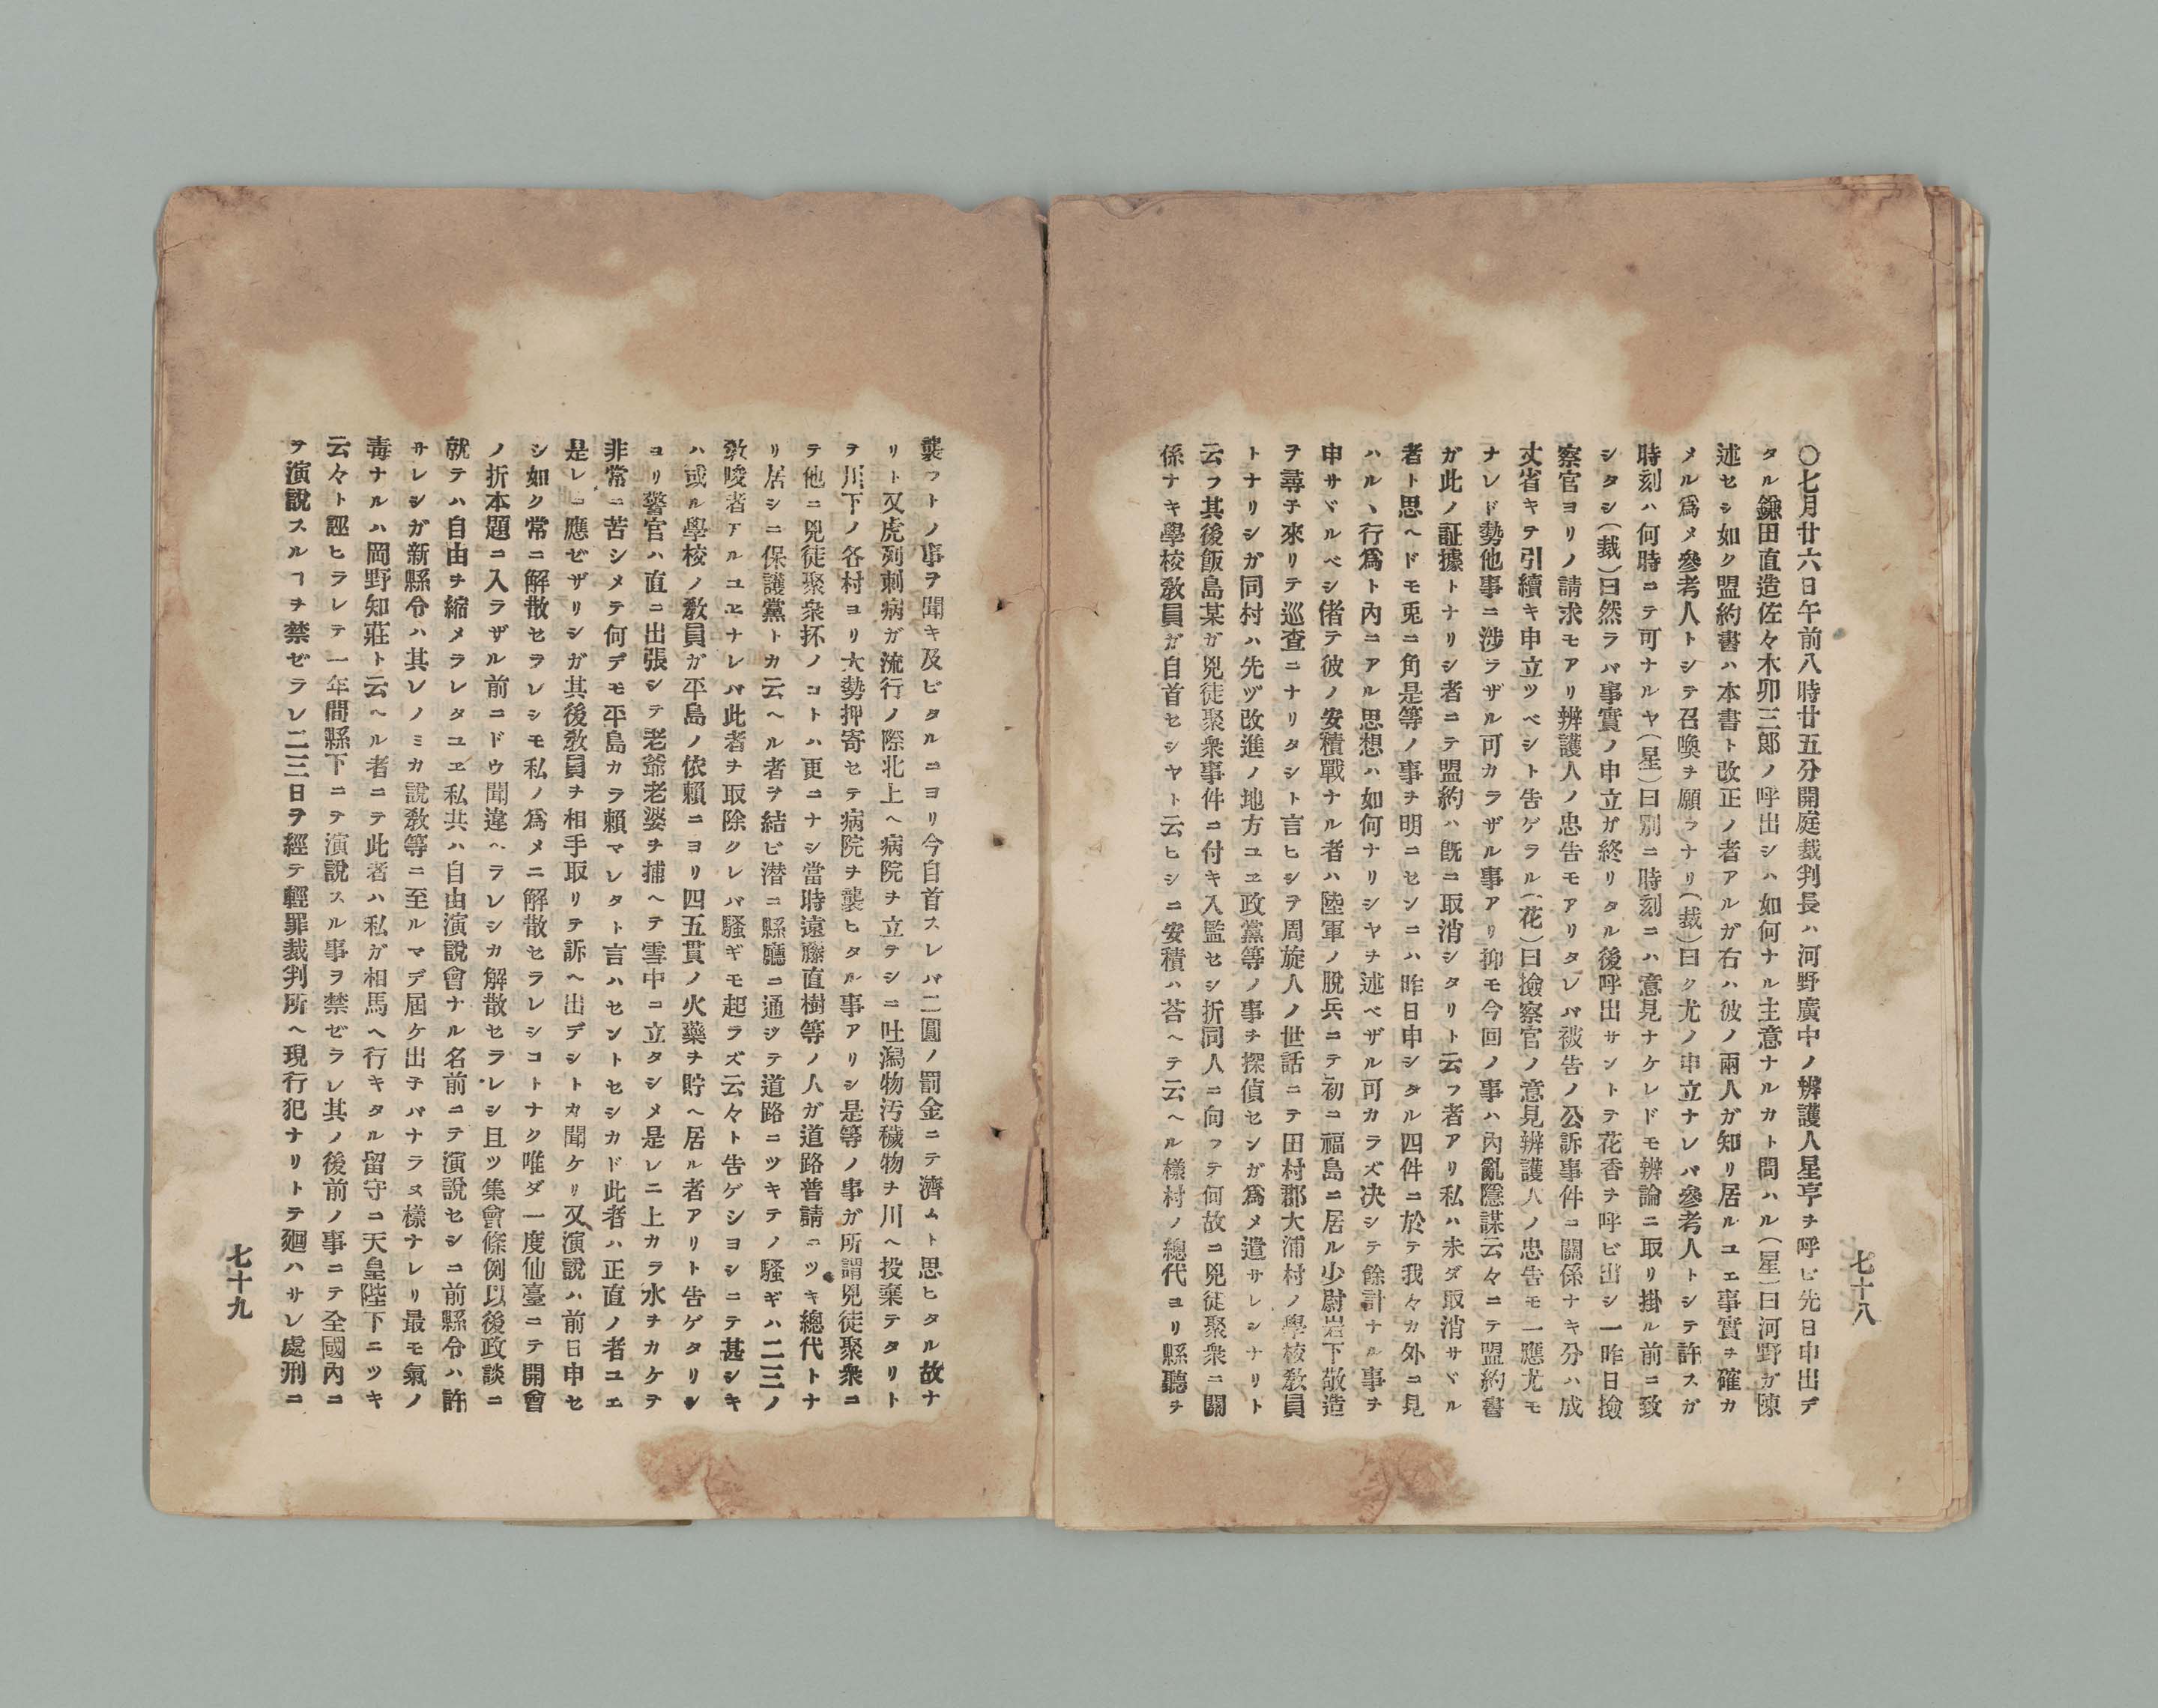 〇七月廿六日午前八時廿五分開庭裁判長ハ河野廣中ノ辨護人星亨ヲ呼ビ先日申出デ
タル鎌田直造佐々木卯三郎ノ呼出シハ如何ナル主意ナルカト問ハル(星)曰河野ガ陳
述セシ如ク盟約書ハ本書ト改正ノ者アルガ右ハ彼ノ兩人ガ知リ居ルユエ事實ヲ確カ
メル爲メ參考人トシテ召喚ヲ願フナリ(裁)曰ク尤ノ申立ナレバ參考人トシテ許スガ
時刻ハ何時ニテ可ナルヤ(星)曰別ニ時刻ニハ意見ナケレドモ辨論ニ取リ掛ル前ニ致
シタシ(裁)曰然ラバ事實ノ申立ガ終リタル後呼出サントテ花香ヲ呼ビ出シ一昨日撿
察官ヨリノ請求モアリ辨護人ノ忠告モアリタレバ被告ノ公訴事件ニ關係ナキ分ハ成
丈省キテ引續キ申立ツベシト告ゲラル(花)曰撿察官ノ意見辨護人ノ忠告モ一應尤モ
ナレド勢他事ニ涉ラザル可カラザル事アリ抑モ今回ノ事ハ內亂隱謀云々ニテ盟約書
ガ此ノ証據トナリシ者ニテ盟約ハ既ニ取消シタリト云フ者アリ私ハ未ダ取消サヾル
者ト思ヘドモ兎ニ角是等ノ事ヲ明ニセンニハ昨日申シタル四件ニ於テ我々カ外ニ見
ハルヽ行爲ト內ニアル思想ハ如何ナリシヤヲ述ベザル可カラズ决シテ餘計ナル事ヲ
申サヾルベシ偖テ彼ノ安積戰ナル者ハ陸軍ノ脫兵ニテ初ニ福島ニ居ル少尉岩下敬造
ヲ尋子來リテ巡査ニナリタシト言ヒシヲ周旋人ノ世話ニテ田村郡大浦村ノ學校敎員
トナリシガ同村ハ先ヅ改進ノ地方ユヱ政黨等ノ事ヲ探偵センガ爲メ遣サレシナリト
云フ其後飯島某ガ兇徒聚衆事件ニ付キ入監セシ折同人ニ向フテ何故ニ兇徒聚衆ニ關
係ナキ學校敎員ガ自首セシヤト云ヒシニ安積ハ荅ヘテ云ヘル樣村ノ總代ヨリ縣聽ヲ
七十八
襲フトノ事ヲ聞キ及ビタルニヨリ今自首スレバ二圓ノ罰金ニテ濟ムト思ヒタル故ナ
リト又虎列刺病ガ流行ノ際北上ヘ病院ヲ立テシニ吐瀉物汚穢物ヲ川ヘ投棄テタリト
ヲ川下ノ各村ヨリ大勢押寄セテ病院ヲ襲ヒタル事アリシ是等ノ事ガ所謂兇徒聚衆ニ
テ他ニ兇徒聚衆抔ノコトハ更ニナシ當時遠藤直樹等ノ人ガ道路普請ニツキ總代トナ
リ居シニ保護黨トカ云ヘル者ヲ結ビ潜ニ縣廳ニ通ジテ道路ニツキテノ騷ギハ二三ノ
敎唆者アルユヱナレバ此者ヲ取除クレバ騷ギモ起ラズ云々ト告ゲシヨシニテ甚シキ
ハ或ル學校ノ敎員ガ平島ノ依賴ニヨリ四五貫ノ火藥ヲ貯ヘ居ル者アリト告ゲタリシ
ヨリ警官ハ直ニ出張シテ老爺老婆ヲ捕ヘテ雪中ニ立タシメ是レニ上カラ水ヲカケテ
非常ニ苦シメテ何デモ平島カラ賴マレタト言ハセントセシカド此者ハ正直ノ者ユエ
是レニ應ゼザリシガ其後敎員ヲ相手取リテ訴ヘ出デシトカ聞ケリ又演說ハ前日申セ
シ如ク常ニ解散セラレシモ私ノ爲メニ解散セラレシコトナク唯ダ一度仙臺ニテ開會
ノ折本題ニ入ラザル前ニドウ聞違ヘラレシカ解散セラレシ且ツ集會條例以後政談ニ
就テハ自由ヲ縮メラレタユヱ私共ハ自由演說會ナル名前ニテ演說セシニ前縣令ハ許
サレシガ新縣令ハ其レノミカ說敎等ニ至ルマデ屆ケ出子バナラヌ樣ナレリ最モ氣ノ
毒ナルハ岡野知莊ト云ヘル者ニテ此者ハ私ガ相馬ヘ行キタル留守ニ天皇陛下ニツキ
云々ト誣ヒラレテ一年間縣下ニテ演說スル事ヲ禁ゼラレ其ノ後前ノ事ニテ全國內ニ
ヲ演說スルヿヲ禁ゼラレ二三日ヲ經テ輕罪裁判所ヘ現行犯ナリトテ廻ハサレ處刑ニ
七十九